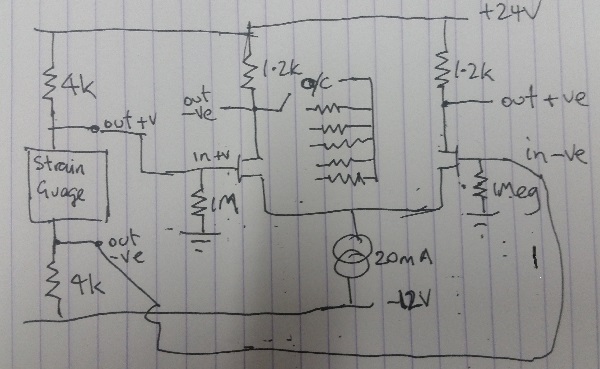 +24V
4k
1.2k
O/C
1.2k
out
-ve
out +ve
out +V
in +v
in -ve
Strain
Guage
1M
1Meg
out
-ve
20mA
4k
-12V